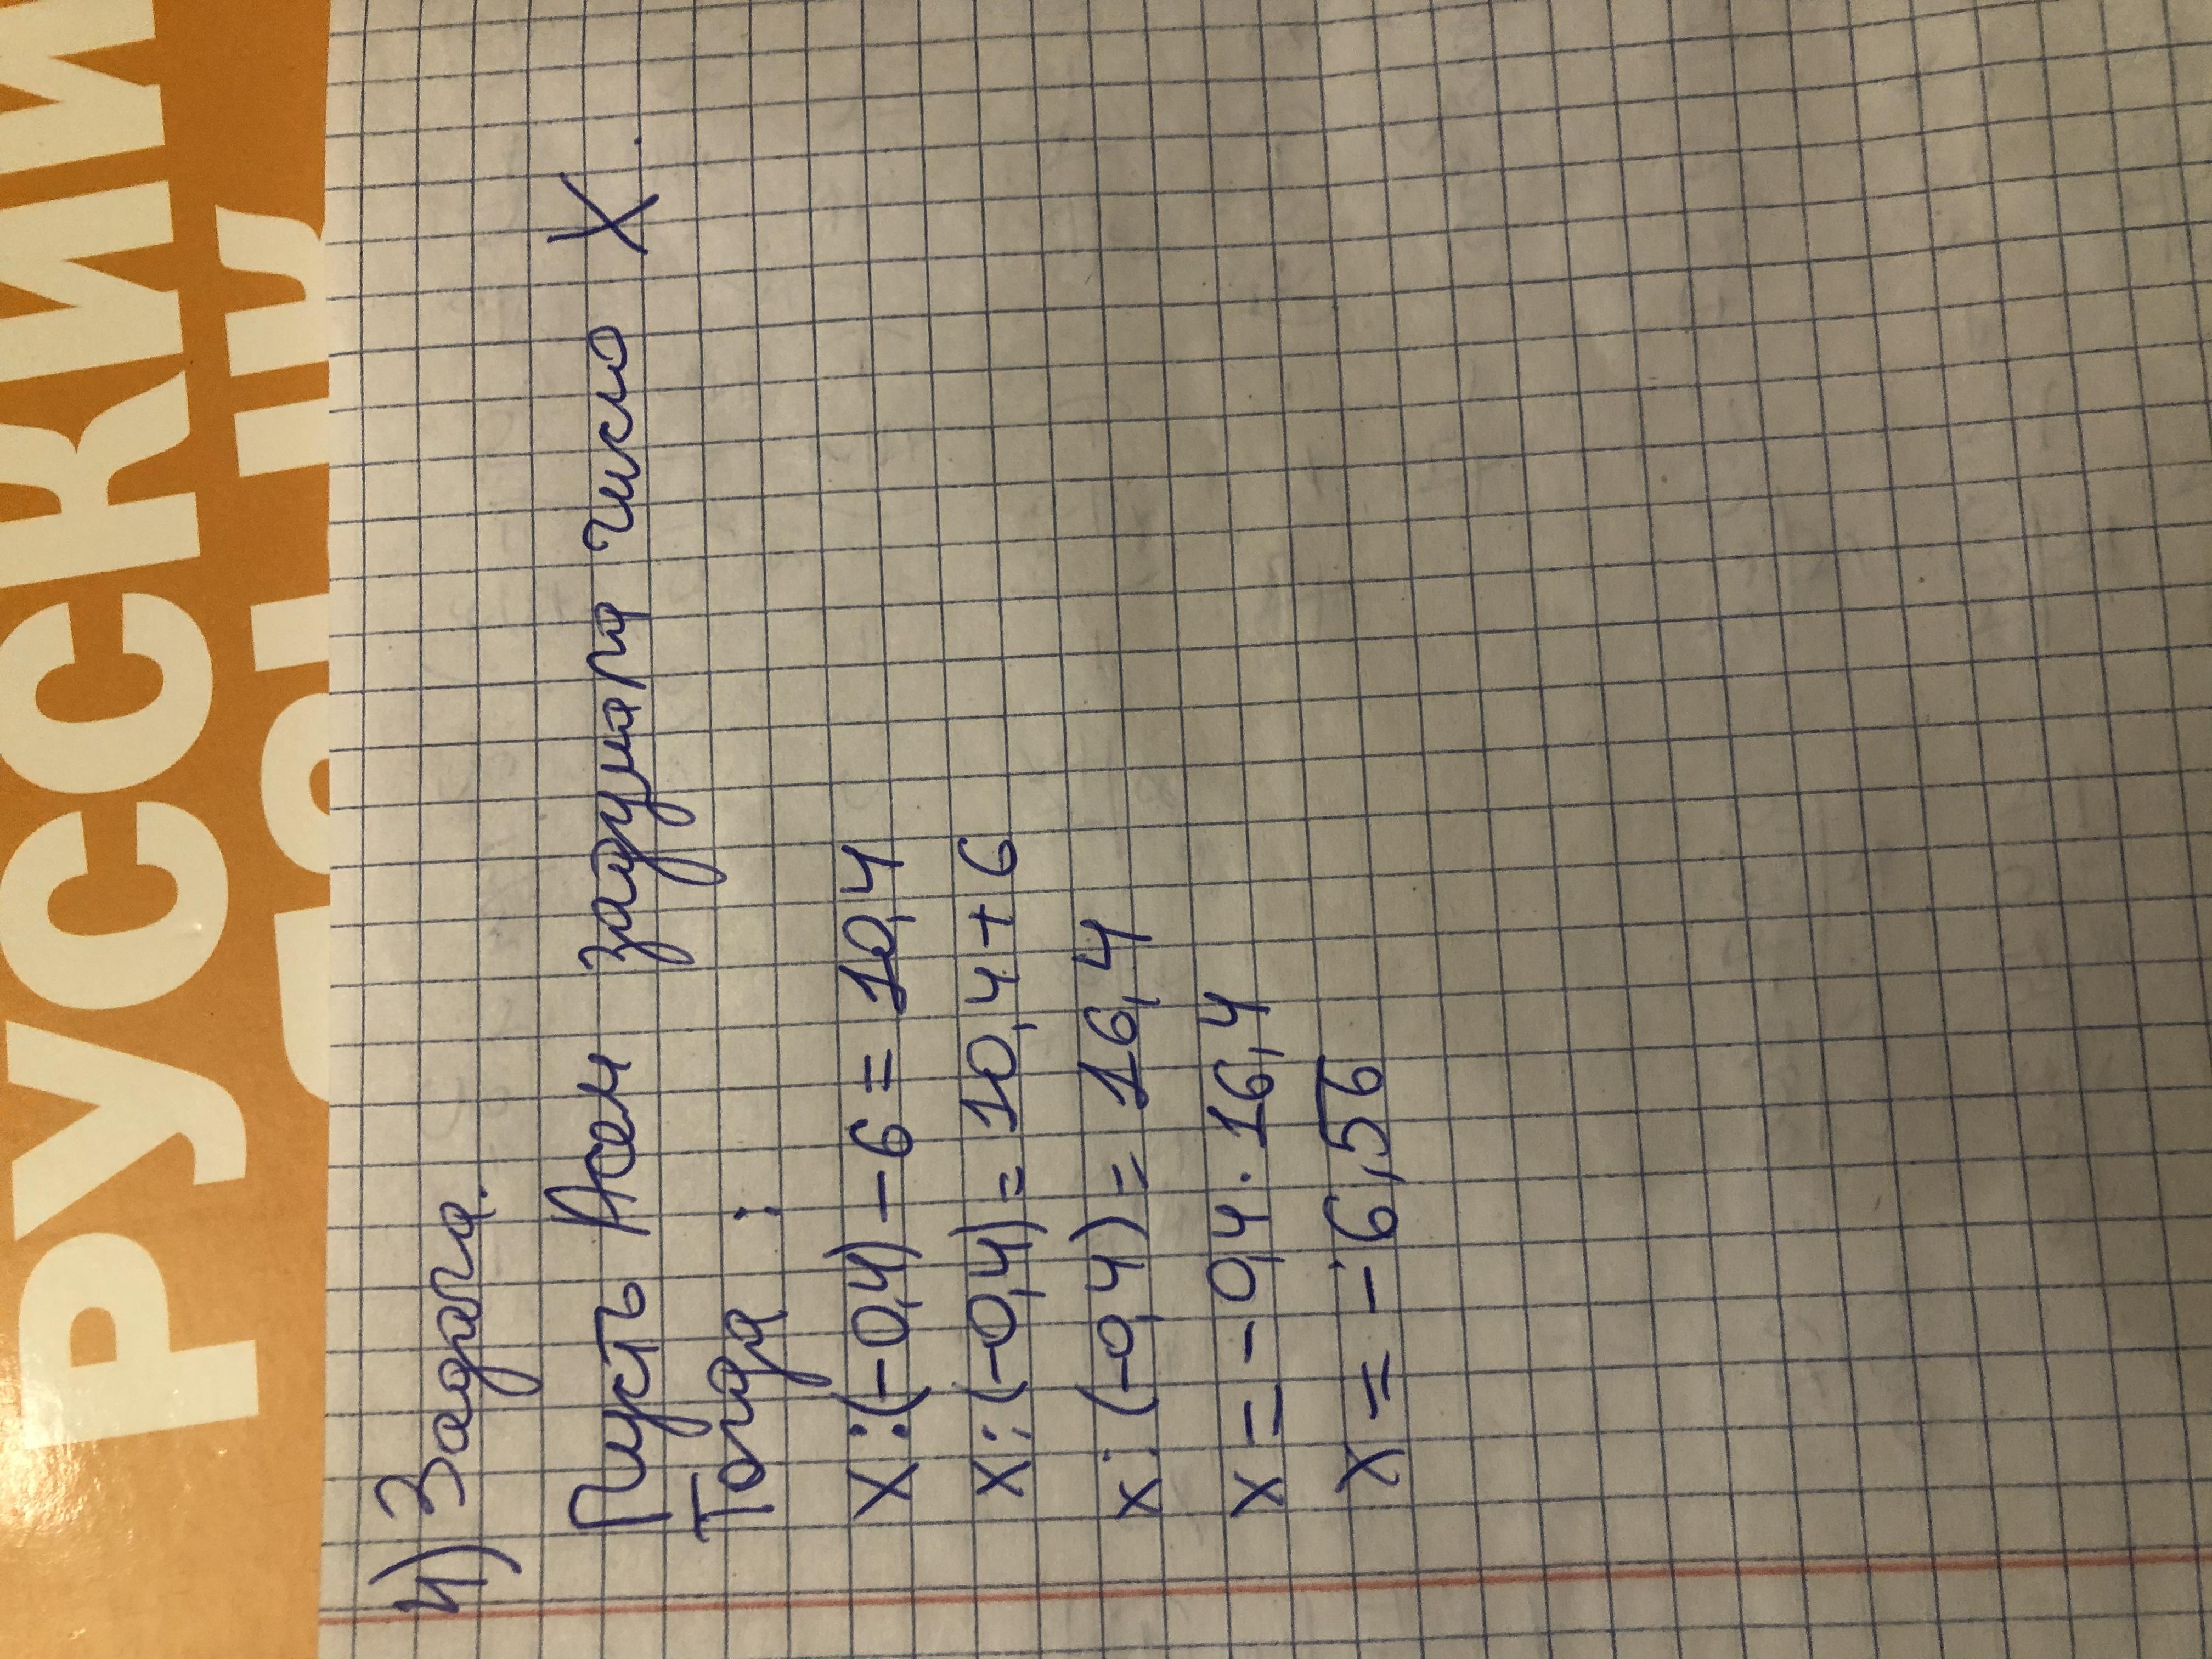 РУССКИЙ
4) Задача.
Пусть Асем задумала число X.
Тогда :
X:(-0,4)-6=10,4
X:(-0,4)=10,4+6
X:(-0,4)=16,4
X=-0,4·16,4
X=-6,56